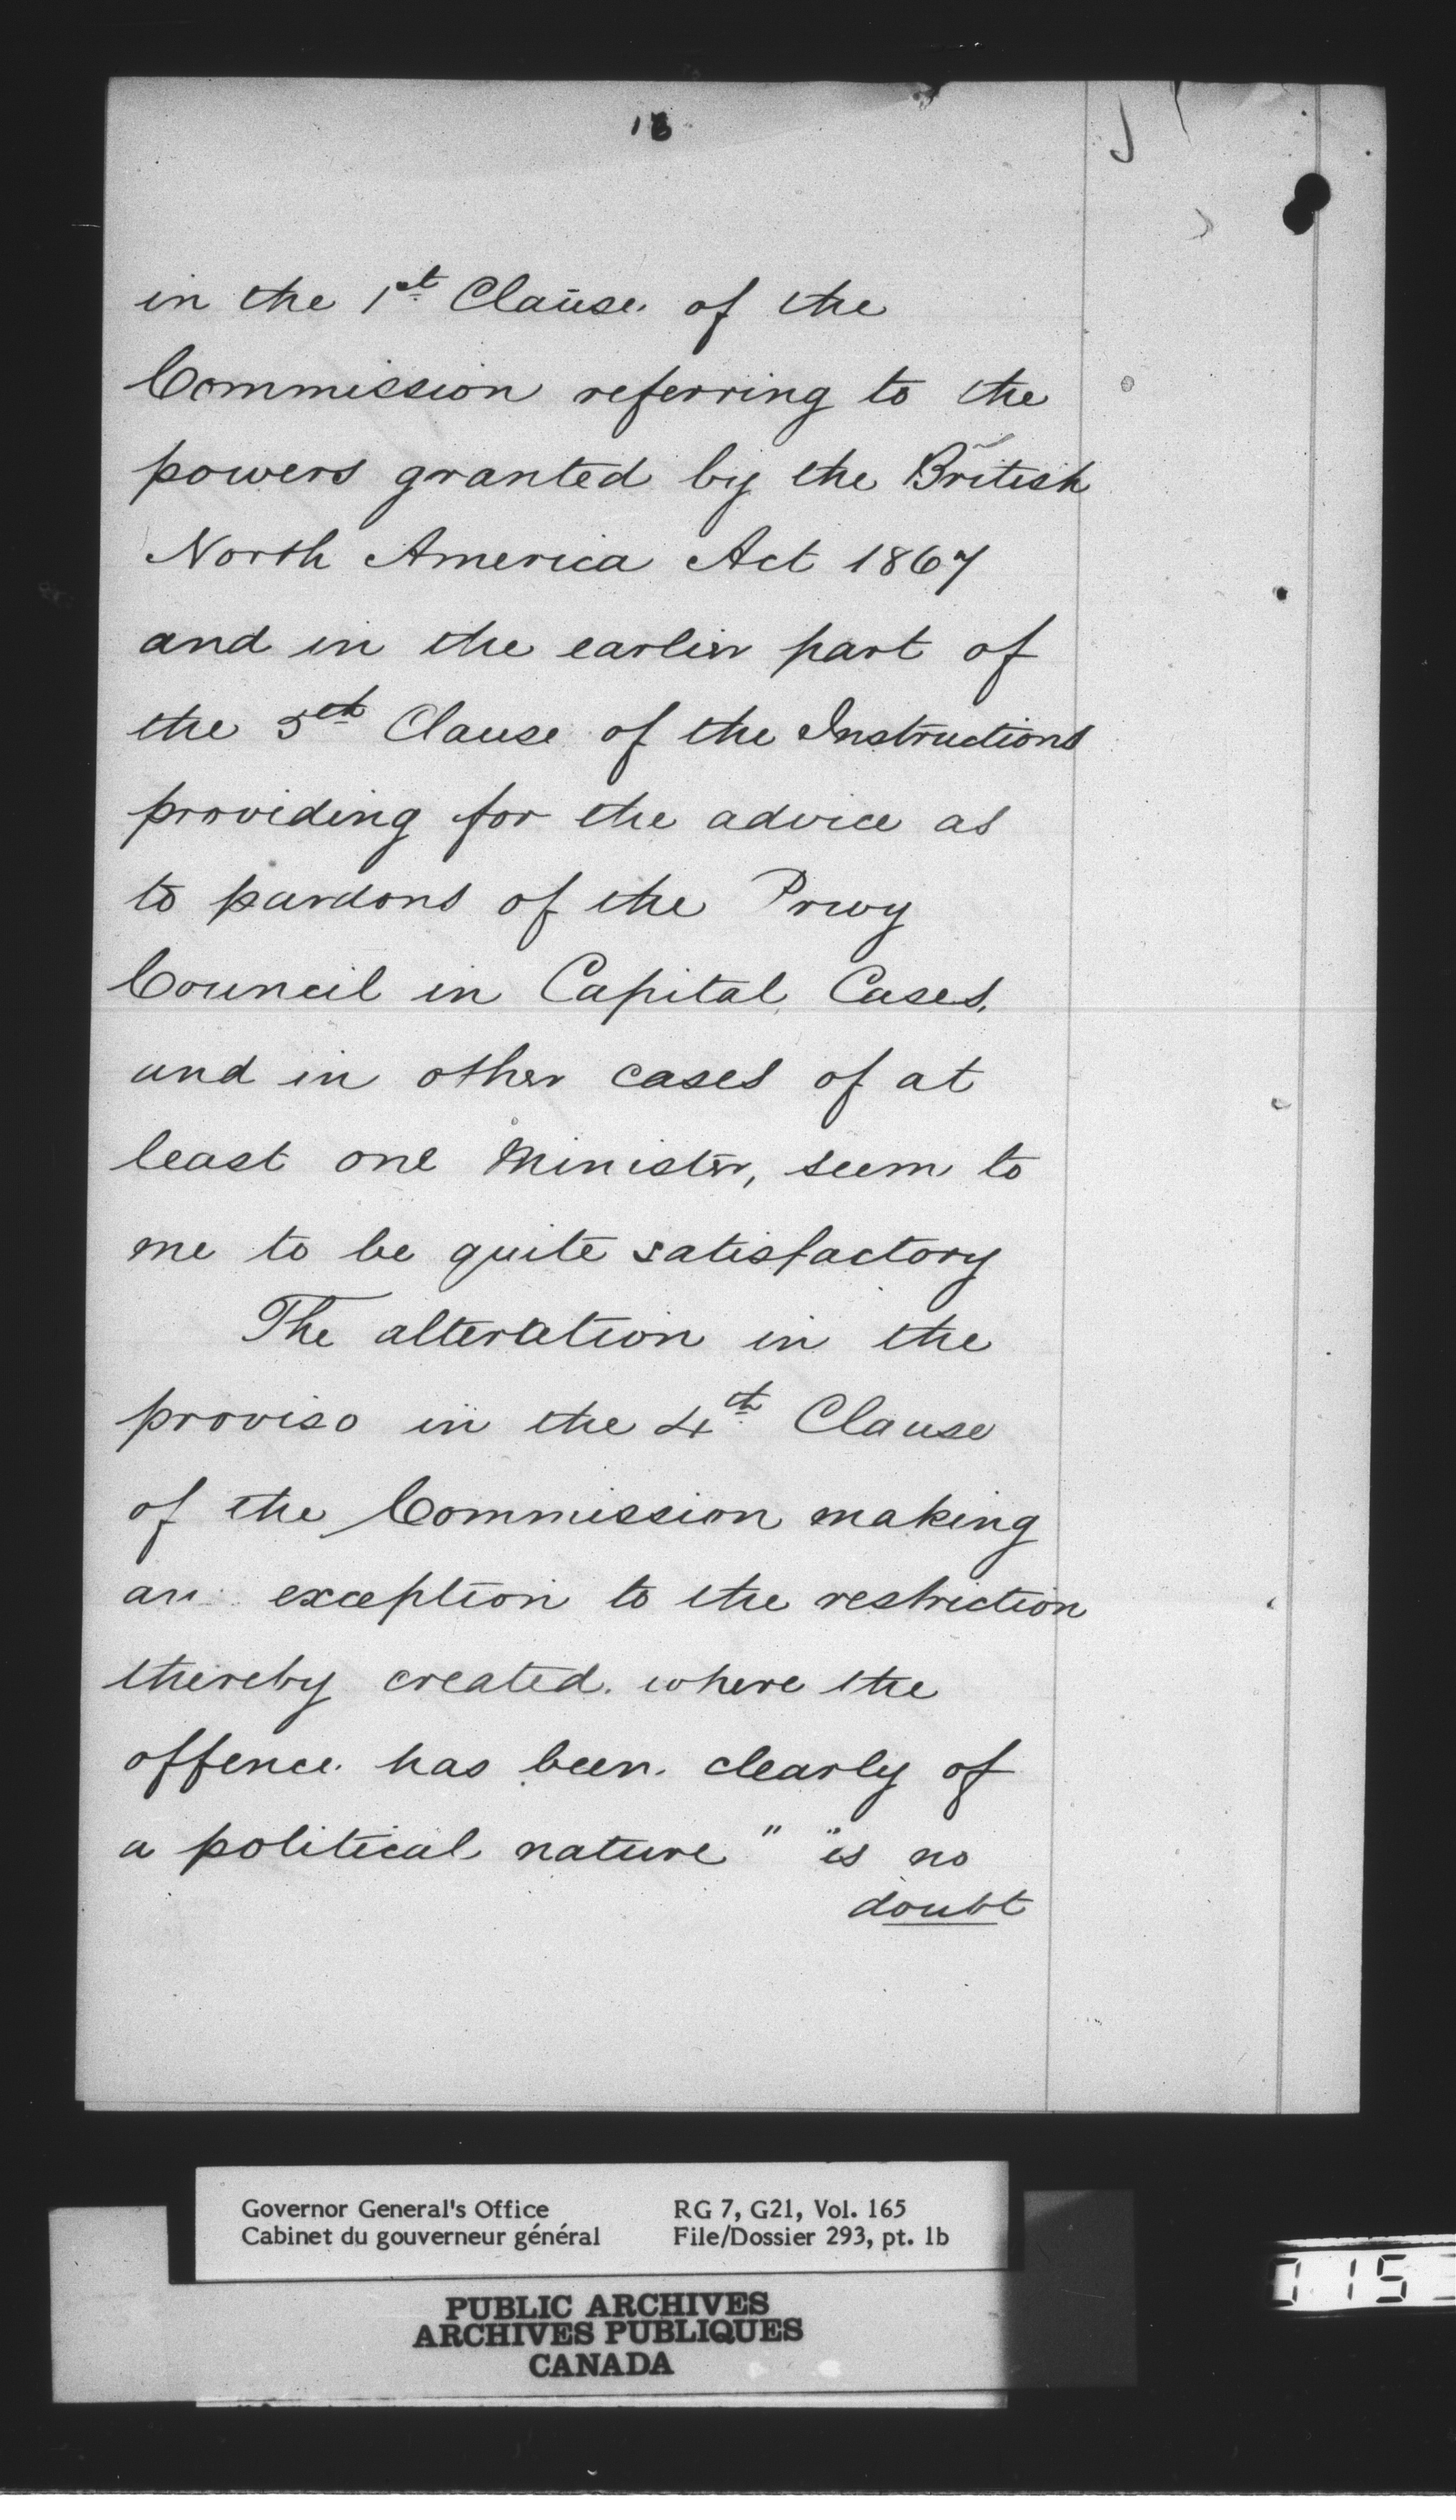 18
in the 1st Clause of the
Commission referring to the
powers granted by the British
North America Act 1867
and in the earlier part of
the 5th Clause of the Instructions
providing for the advice as
to pardons of the Privy
Council in Capital Cases,
and in other cases of at
least one Minister, seem to
me to be quite satisfactory
The alteration in the
proviso in the 4th Clause
of the Commission making
an exception to the restriction
thereby created where the
offence has been clearly of
a political nature" "is no
doubt
Governor General's Office
Cabinet du gouverneur général
RG 7, G21, Vol. 165
File/Dossier 293, pt. 1b
PUBLIC ARCHIVES
ARCHIVES PUBLIQUES
CANADA